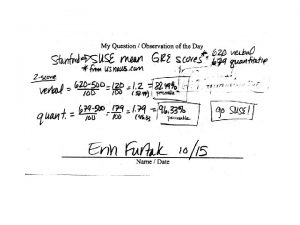 My Question / Observation of the Day
Stanford SUSE mean GRE scores* = 620 verbal
* from usnews.com 679 quantitative
z-score
verbal = 620-500/100 = 120/100 = 1.2 = percentile
quant. = 679-500/100 = 179/100 = 1.79 = 96.33% percentile
go SUSE!
Erin Furtak 10/15
Name / Date